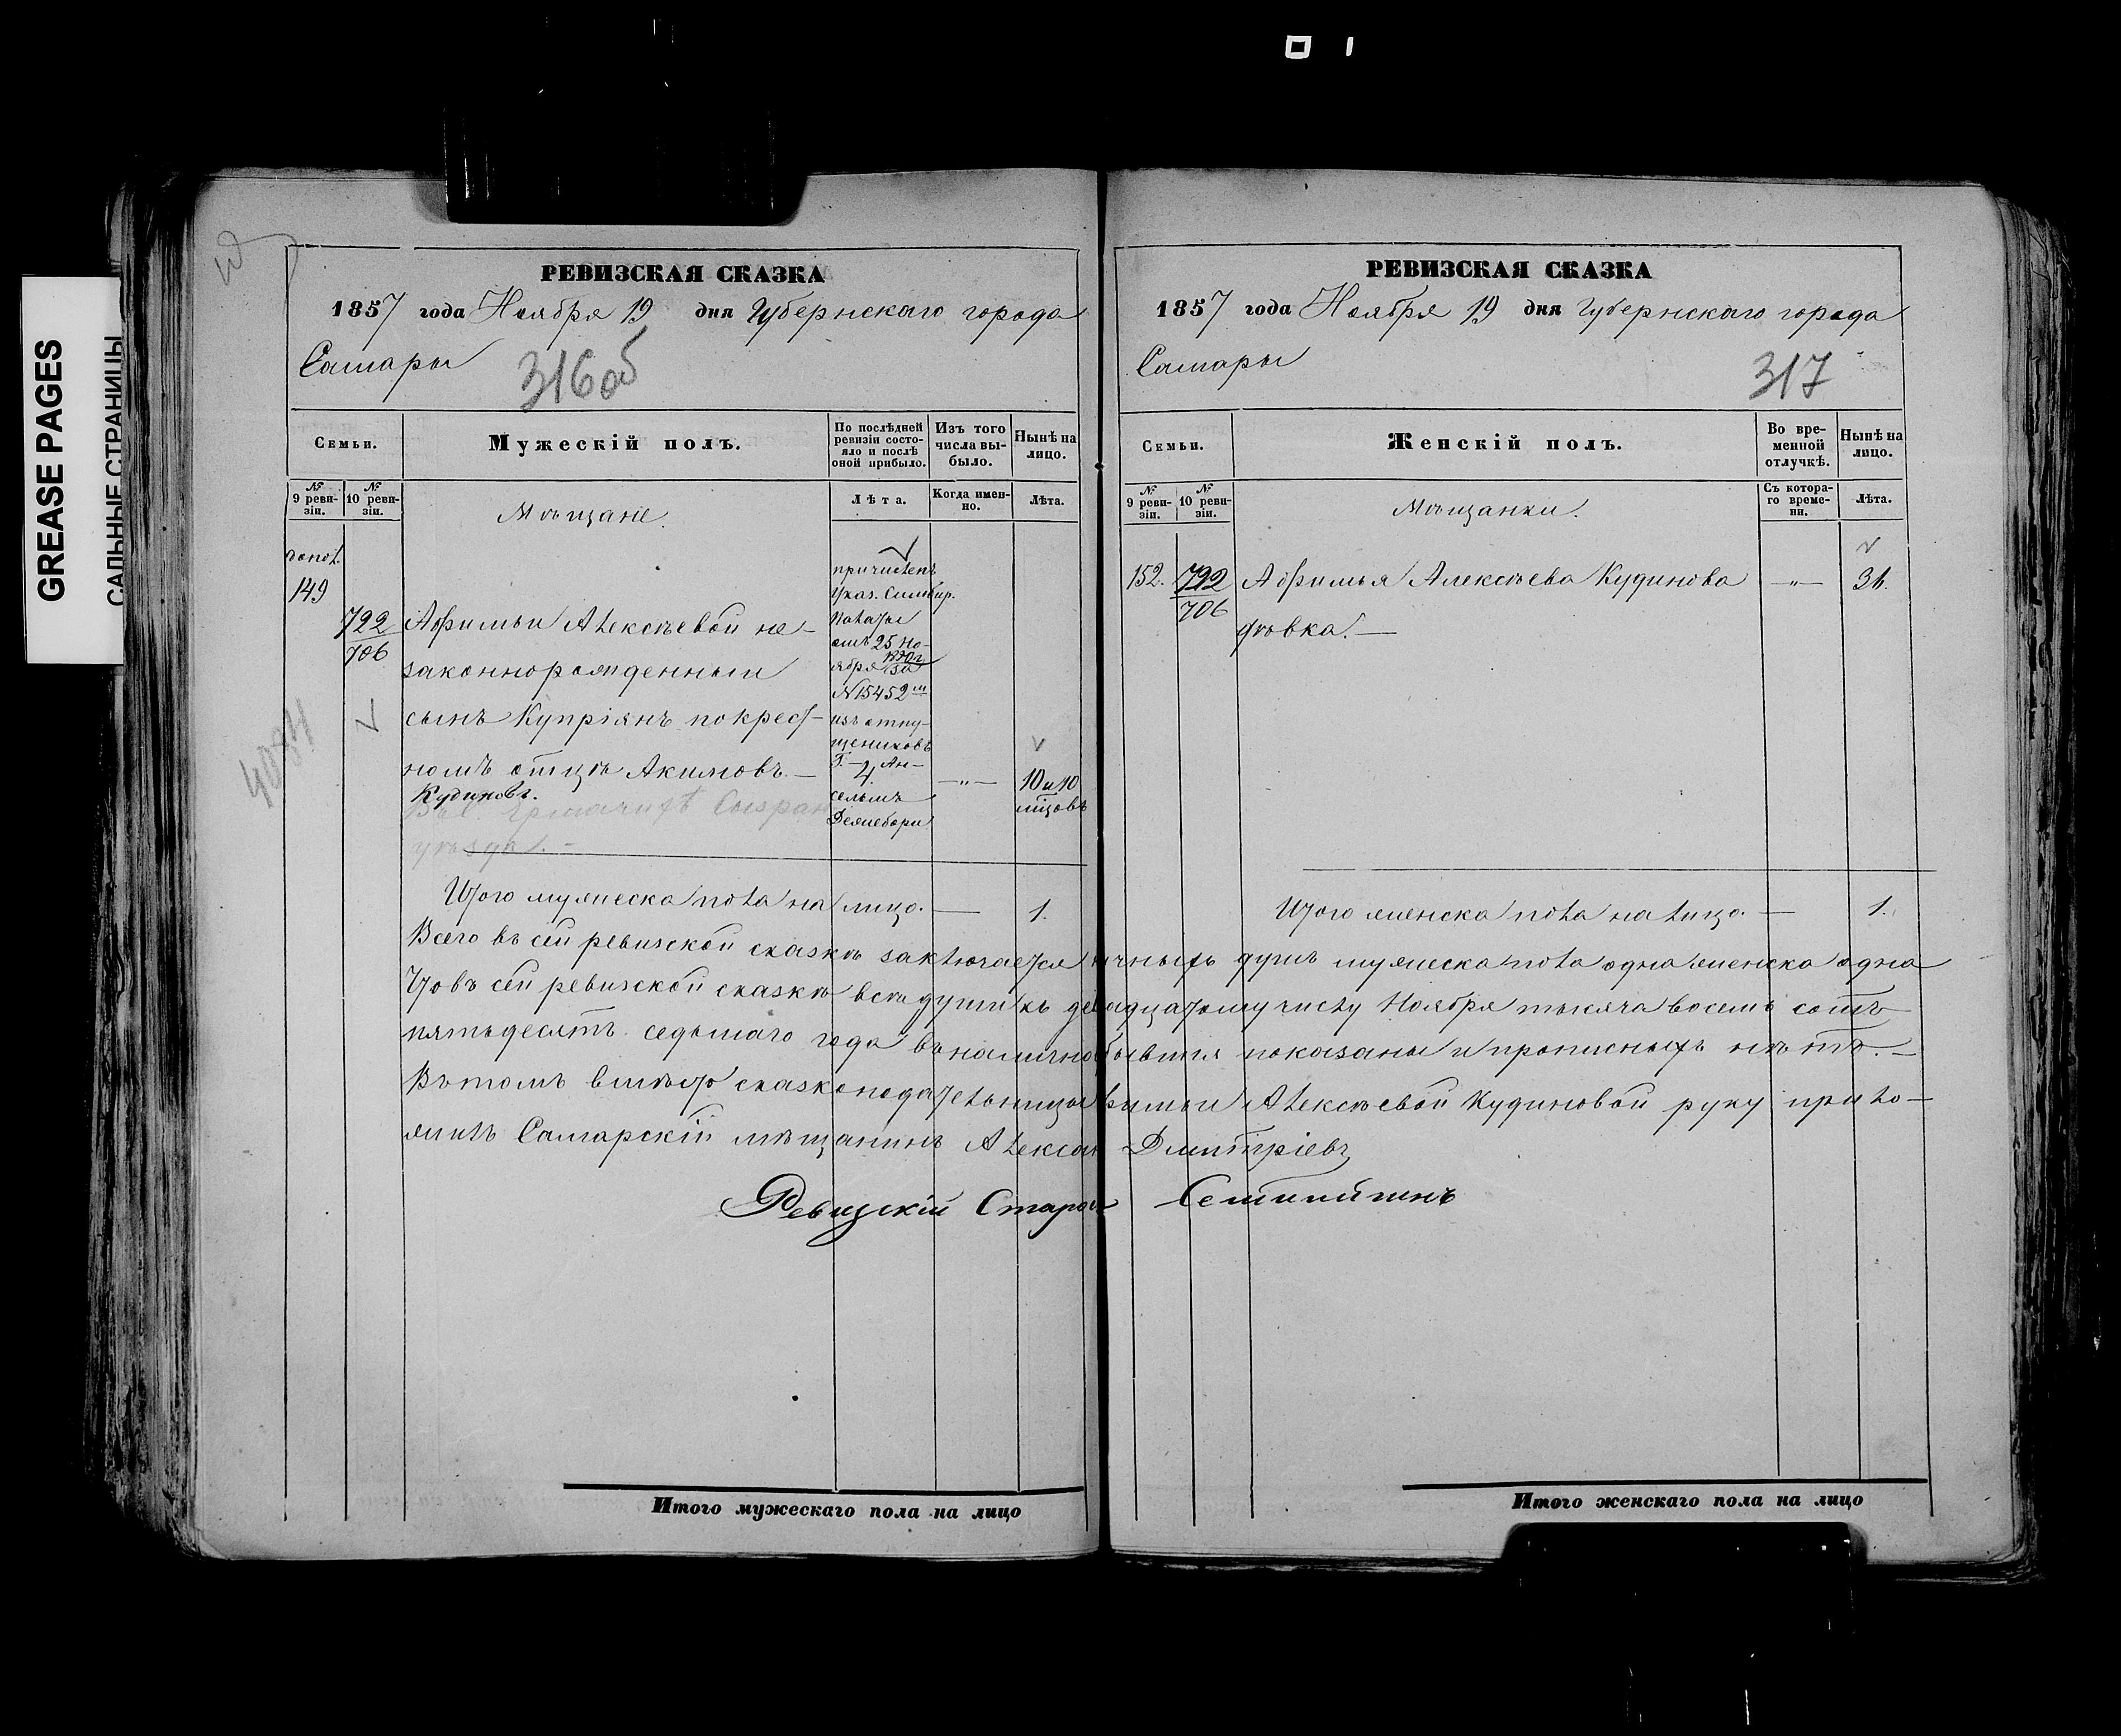 GREASE PAGES
САЛЬНЫЕ СТРАНИЦЫ
РЕВИЗСКАЯ СКАЗКА
1857 года Ноября 19 дня Губернскаго города
Самары
316об
Семьи.
Мужескій полъ.
По послѣдней ревизіи состояло и послѣ оной прибыло.
Изъ того числа выбыло.
Нынѣ на лицо.
№ 9 ревизіи.
№ 10 ревизіи.
Мѣщане.
Лѣта.
Когда именно.
Лѣта.
допол.
149
722
706
Афимьи Алексѣевой не-
законнорожденный
сынъ Купріянъ по крест-
номъ отцѣ Акимовъ. —
Кудиновъ.
Сызран
уѣзда. —
причисленъ
указ. Симбир.
Палаты
отъ 25 Но-
ября
№ 15452 м
изъ отпу-
щениковъ
Г. — Ан-
4.
сельмъ
—„—
10 и 10
мѣцовъ
4084
Итого мужеска пола на лицо. — 1.
РЕВИЗСКАЯ СКАЗКА
1857 года Ноября 19 дня Губернскаго города
Самары
317
Семьи.
Женскій полъ.
Во временной отлучкѣ.
Нынѣ на лицо.
№ 9 ревизіи.
№ 10 ревизіи.
Мѣщанки.
Съ котораго времени.
Лѣта.
152. 722 Афимья Алексѣева Кудинова —„— 31.
706
дѣвка. —
Итого женска пола на лицо. — 1.
Всего въ сей ревизской сказкѣ заключается личныхъ душъ мужеска пола одна женска одна
Что въ сей ревизской сказкѣ всѣ души къ девятнадцатому числу Ноября тысяча восемь сотъ
пятьдесятъ седьмаго года въ наличнобывшія показаны и прописныхъ нѣтъ. —
Въ томъ вмѣсто сказкоподательницы Афимьи Алексѣевой Кудиновой руку прило-
жилъ Самарскій мѣщанинъ Алексан Дмитріевъ
Ревизскій Старос
Итого мужескаго пола на лицо
Итого женскаго пола на лицо